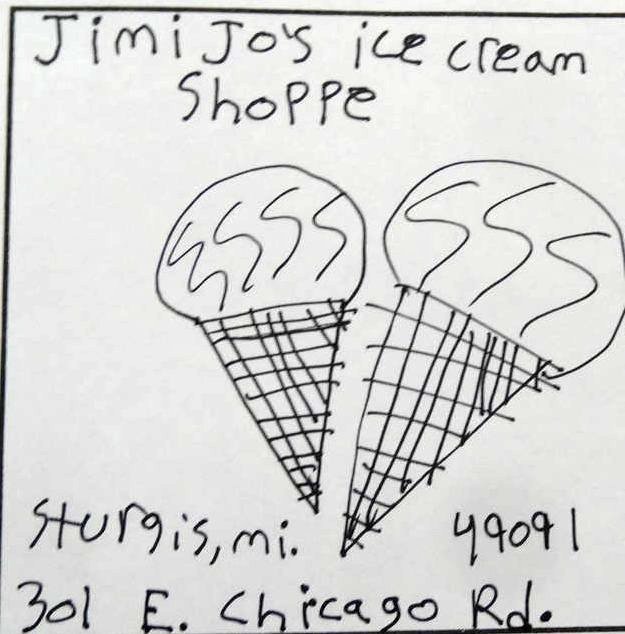 Jimi Jo's ice cream
Shoppe
Sturgis, mi. 49091
301 E. Chicago Rd.